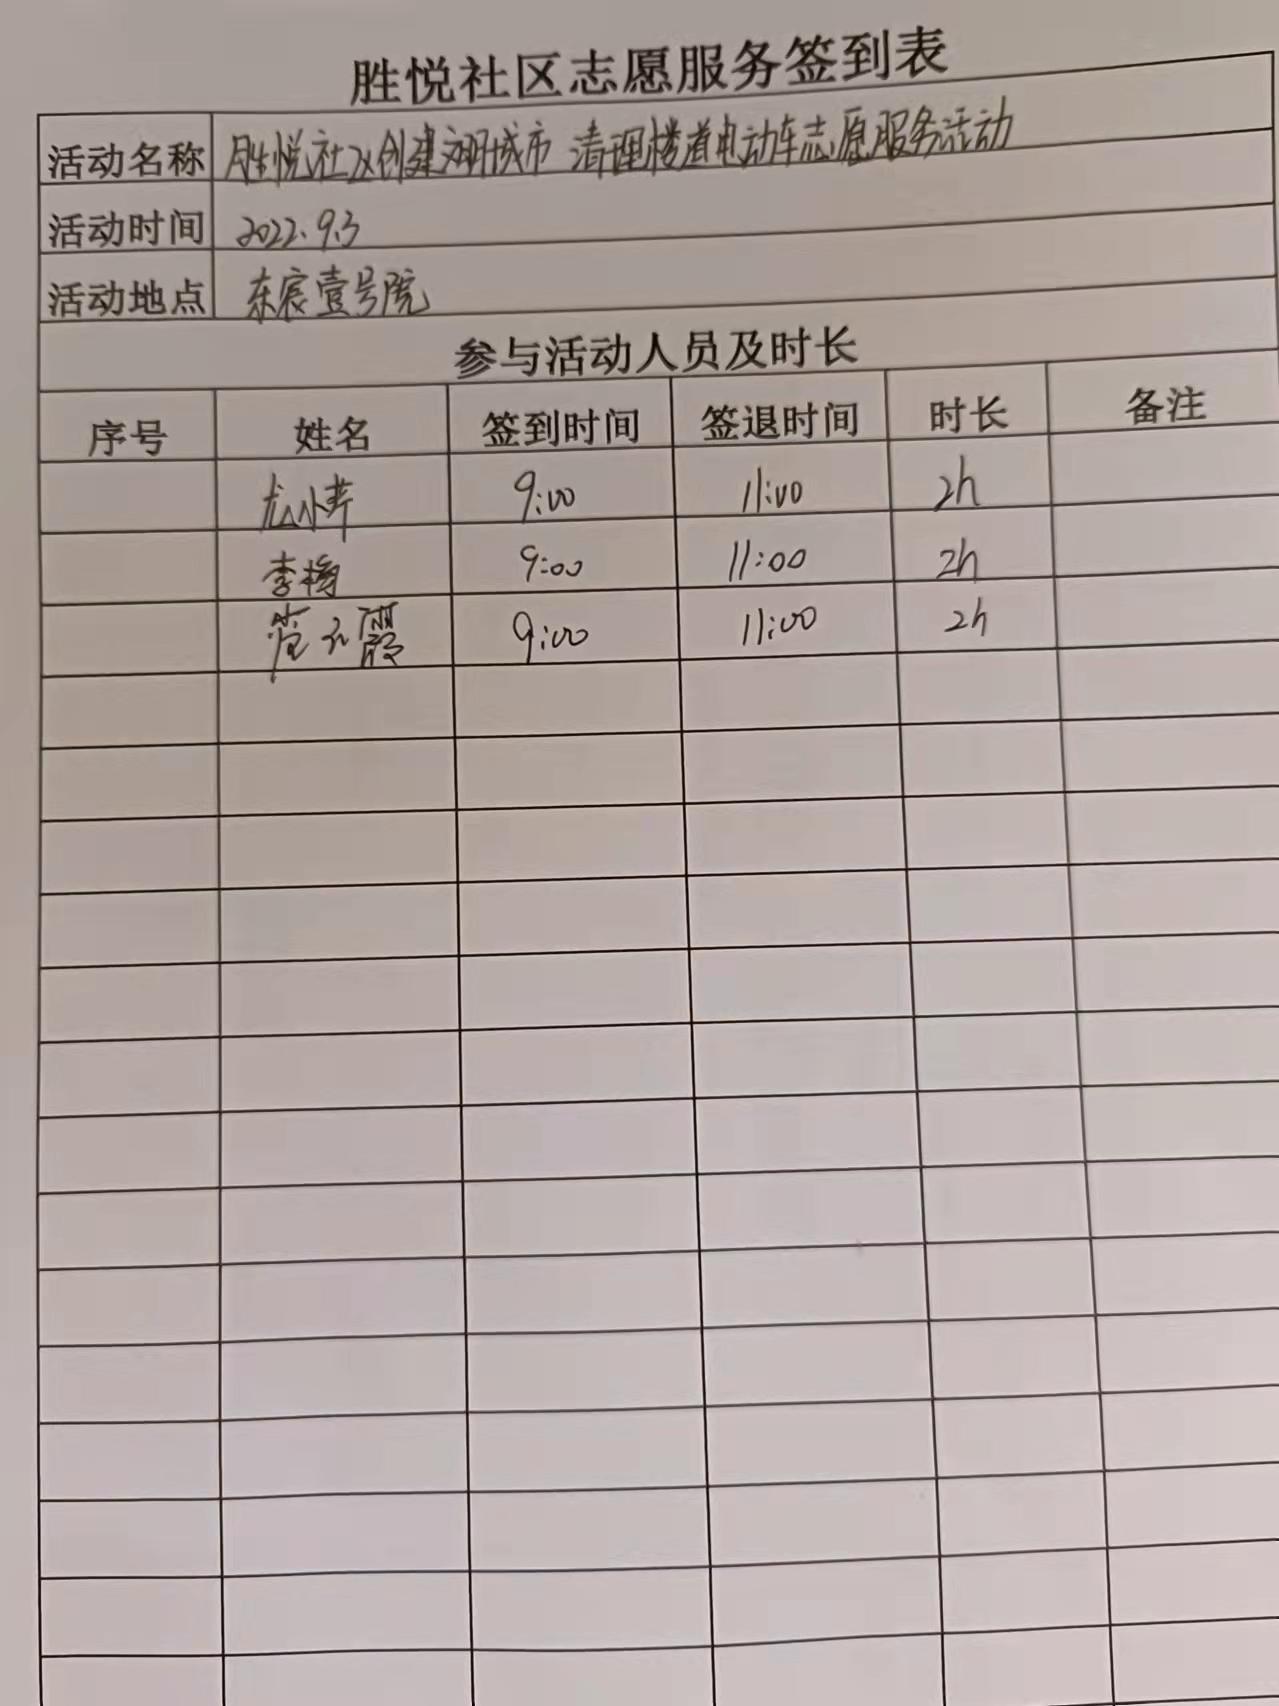 胜悦社区志愿服务签到表
活动名称 胜悦社区创建文明城市 清理楼道电动车志愿服务活动
活动时间 2022.9.3
活动地点 东宸壹号院
参与活动人员及时长
序号 姓名 签到时间 签退时间 时长 备注
尤小苹 9:00 11:00 2h
李梅 9:00 11:00 2h
霞 9:00 11:00 2h